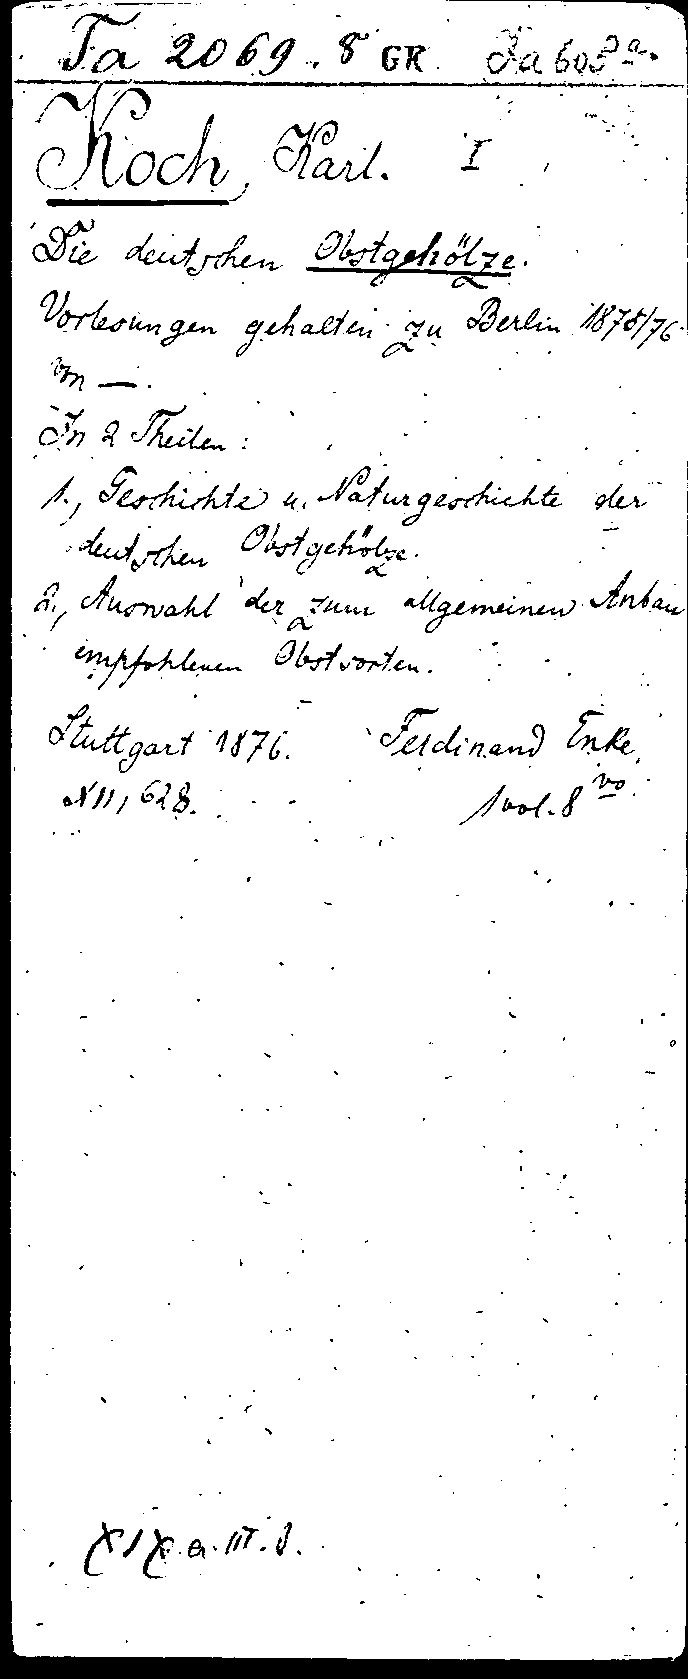 Ta 2069.8 GR Ta 603 a.
Koch, Karl. I
Die deutschen Obstgehölze.
Vorlesungen gehalten zu Berlin 1875/76
von —.
In 2 Theilen:
1., Geschichte u. Naturgeschichte der
deutschen Obstgehölze.
2., Auswahl der zum allgemeinen Anbau
empfohlenen Obstsorten.
Stuttgart 1876. Ferdinand Enke.
N 11, 628. 1 vol. 8 vo.